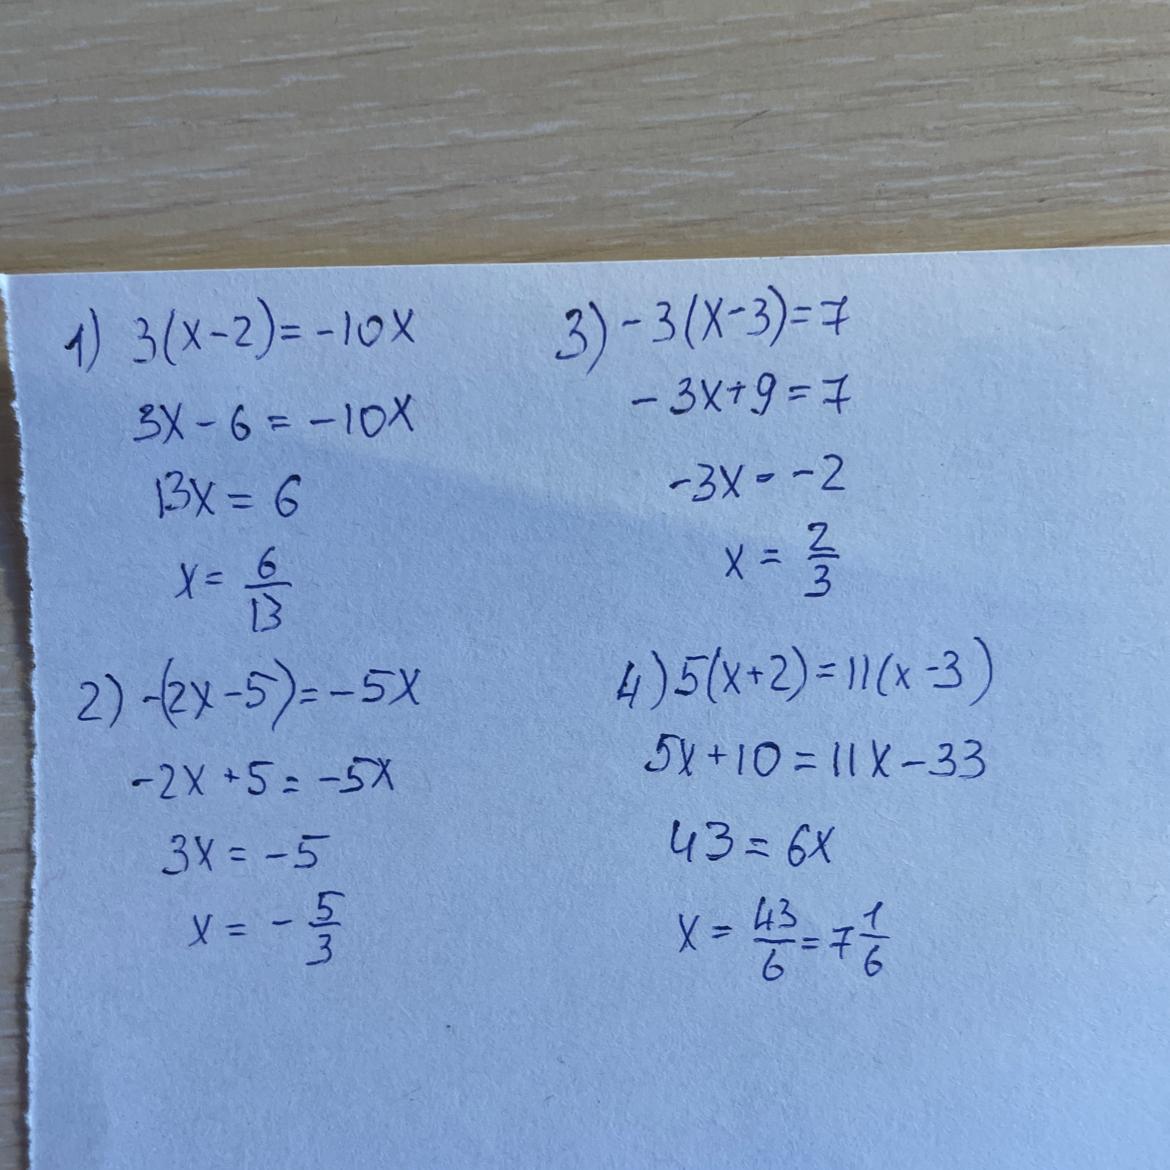 1) 3(x-2)=-10x
3x-6=-10x
13x=6
x=6/13
2) -(2x-5)=-5x
-2x+5=-5x
3x=-5
x=-5/3
3) -3(x-3)=7
-3x+9=7
-3x=-2
x=2/3
4) 5(x+2)=11(x-3)
5x+10=11x-33
43=6x
x=43/6=7 1/6